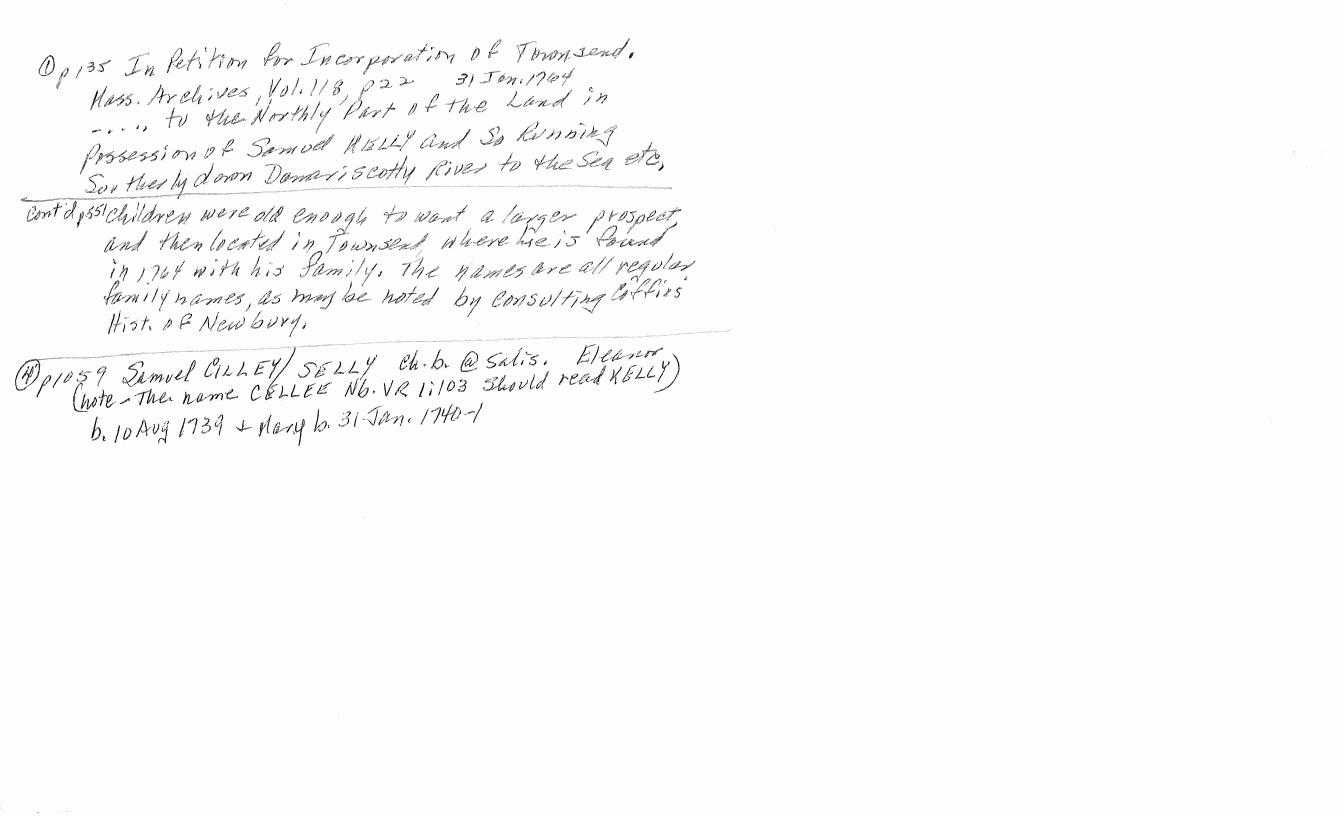 ① p 135 In Petition for Incorporation of Townsend.
Mass. Archives, Vol. 118, p 22 31 Jan. 1764
-...., to the Northly Part of the Land in
Possession of Samuel KELLY and So Running
Southerly down Damariscotty River to the Sea etc.
Cont'd p551 Children were old enough to want a larger prospect,
and then located in Townsend, where he is found
in 1764 with his family. The names are all regular
family names, as may be noted by consulting Coffin's
Hist. of Newbury.
④ p1059 Samuel CILLEY/SELLY Ch. b. @ Salis. Eleanor
(note - The name CELLEE Nb. VR 1:103 Should read KELLY)
b. 10 Aug 1739 + Mary b. 31 Jan. 1740-1